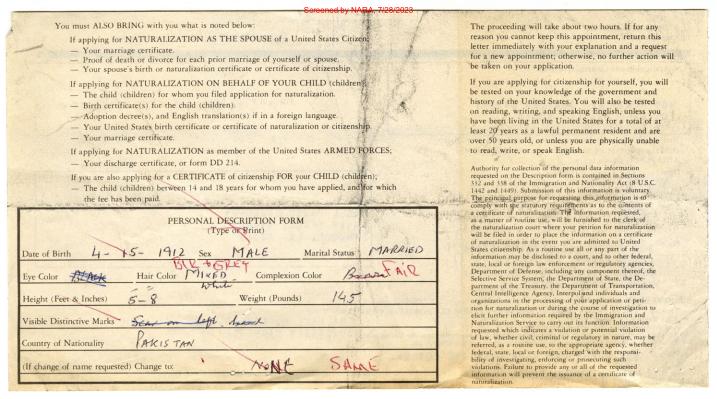 Screened by NARA, 7/28/2023
You must ALSO BRING with you what is noted below:
If applying for NATURALIZATION AS THE SPOUSE of a United States Citizen;
— Your marriage certificate.
— Proof of death or divorce for each prior marriage of yourself or spouse.
— Your spouse's birth or naturalization certificate or certificate of citizenship.
If applying for NATURALIZATION ON BEHALF OF YOUR CHILD (children);
— The child (children) for whom you filed application for naturalization.
— Birth certificate(s) for the child (children).
— Adoption decree(s), and English translation(s) if in a foreign language.
— Your United States birth certificate or certificate of naturalization or citizenship.
— Your marriage certificate.
If applying for NATURALIZATION as member of the United States ARMED FORCES;
— Your discharge certificate, or form DD 214.
If you are also applying for a CERTIFICATE of citizenship FOR your CHILD (children);
— The child (children) between 14 and 18 years for whom you have applied, and for which
the fee has been paid.
PERSONAL DESCRIPTION FORM
(Type or Print)
Date of Birth 4-15-1912 Sex MALE Marital Status MARRIED
BLK + GREY
Eye Color BLACK Hair Color MIXED Complexion Color FAIR
White
Height (Feet & Inches) 5-8 Weight (Pounds) 145
Visible Distinctive Marks Scar on left hand
Country of Nationality PAKISTAN
(If change of name requested) Change to: NONE SAME
The proceeding will take about two hours. If for any
reason you cannot keep this appointment, return this
letter immediately with your explanation and a request
for a new appointment; otherwise, no further action will
be taken on your application.
If you are applying for citizenship for yourself, you will
be tested on your knowledge of the government and
history of the United States. You will also be tested
on reading, writing, and speaking English, unless you
have been living in the United States for a total of at
least 20 years as a lawful permanent resident and are
over 50 years old, or unless you are physically unable
to read, write, or speak English.
Authority for collection of the personal data information
requested on the Description form is contained in Sections
332 and 338 of the Immigration and Nationality Act (8 U.S.C.
1442 and 1449). Submission of this information is voluntary.
The principal purpose for requesting this information is to
comply with the statutory requirements as to the contents of
a certificate of naturalization. The information requested,
as a matter of routine use, will be furnished to the clerk of
the naturalization court where your petition for naturalization
will be filed in order to place the information on a certificate
of naturalization in the event you are admitted to United
States citizenship. As a routine use all or any part of the
information may be disclosed to a court, and to other federal,
state, local or foreign law enforcement or regulatory agencies,
Department of Defense, including any component thereof, the
Selective Service System, the Department of State, the Depart-
ment of the Treasury, the Department of Transportation,
Central Intelligence Agency, Interpol and individuals and
organizations in the processing of your application or peti-
tion for naturalization or during the course of investigation to
elicit further information required by the Immigration and
Naturalization Service to carry out its function. Information
requested which indicates a violation or potential violation
of law, whether civil, criminal or regulatory in nature, may be
referred, as a routine use, to the appropriate agency, whether
federal, state, local or foreign, charged with the responsi-
bility of investigating, enforcing or prosecuting such
violations. Failure to provide any or all of the requested
information will prevent the issuance of a certificate of
naturalization.